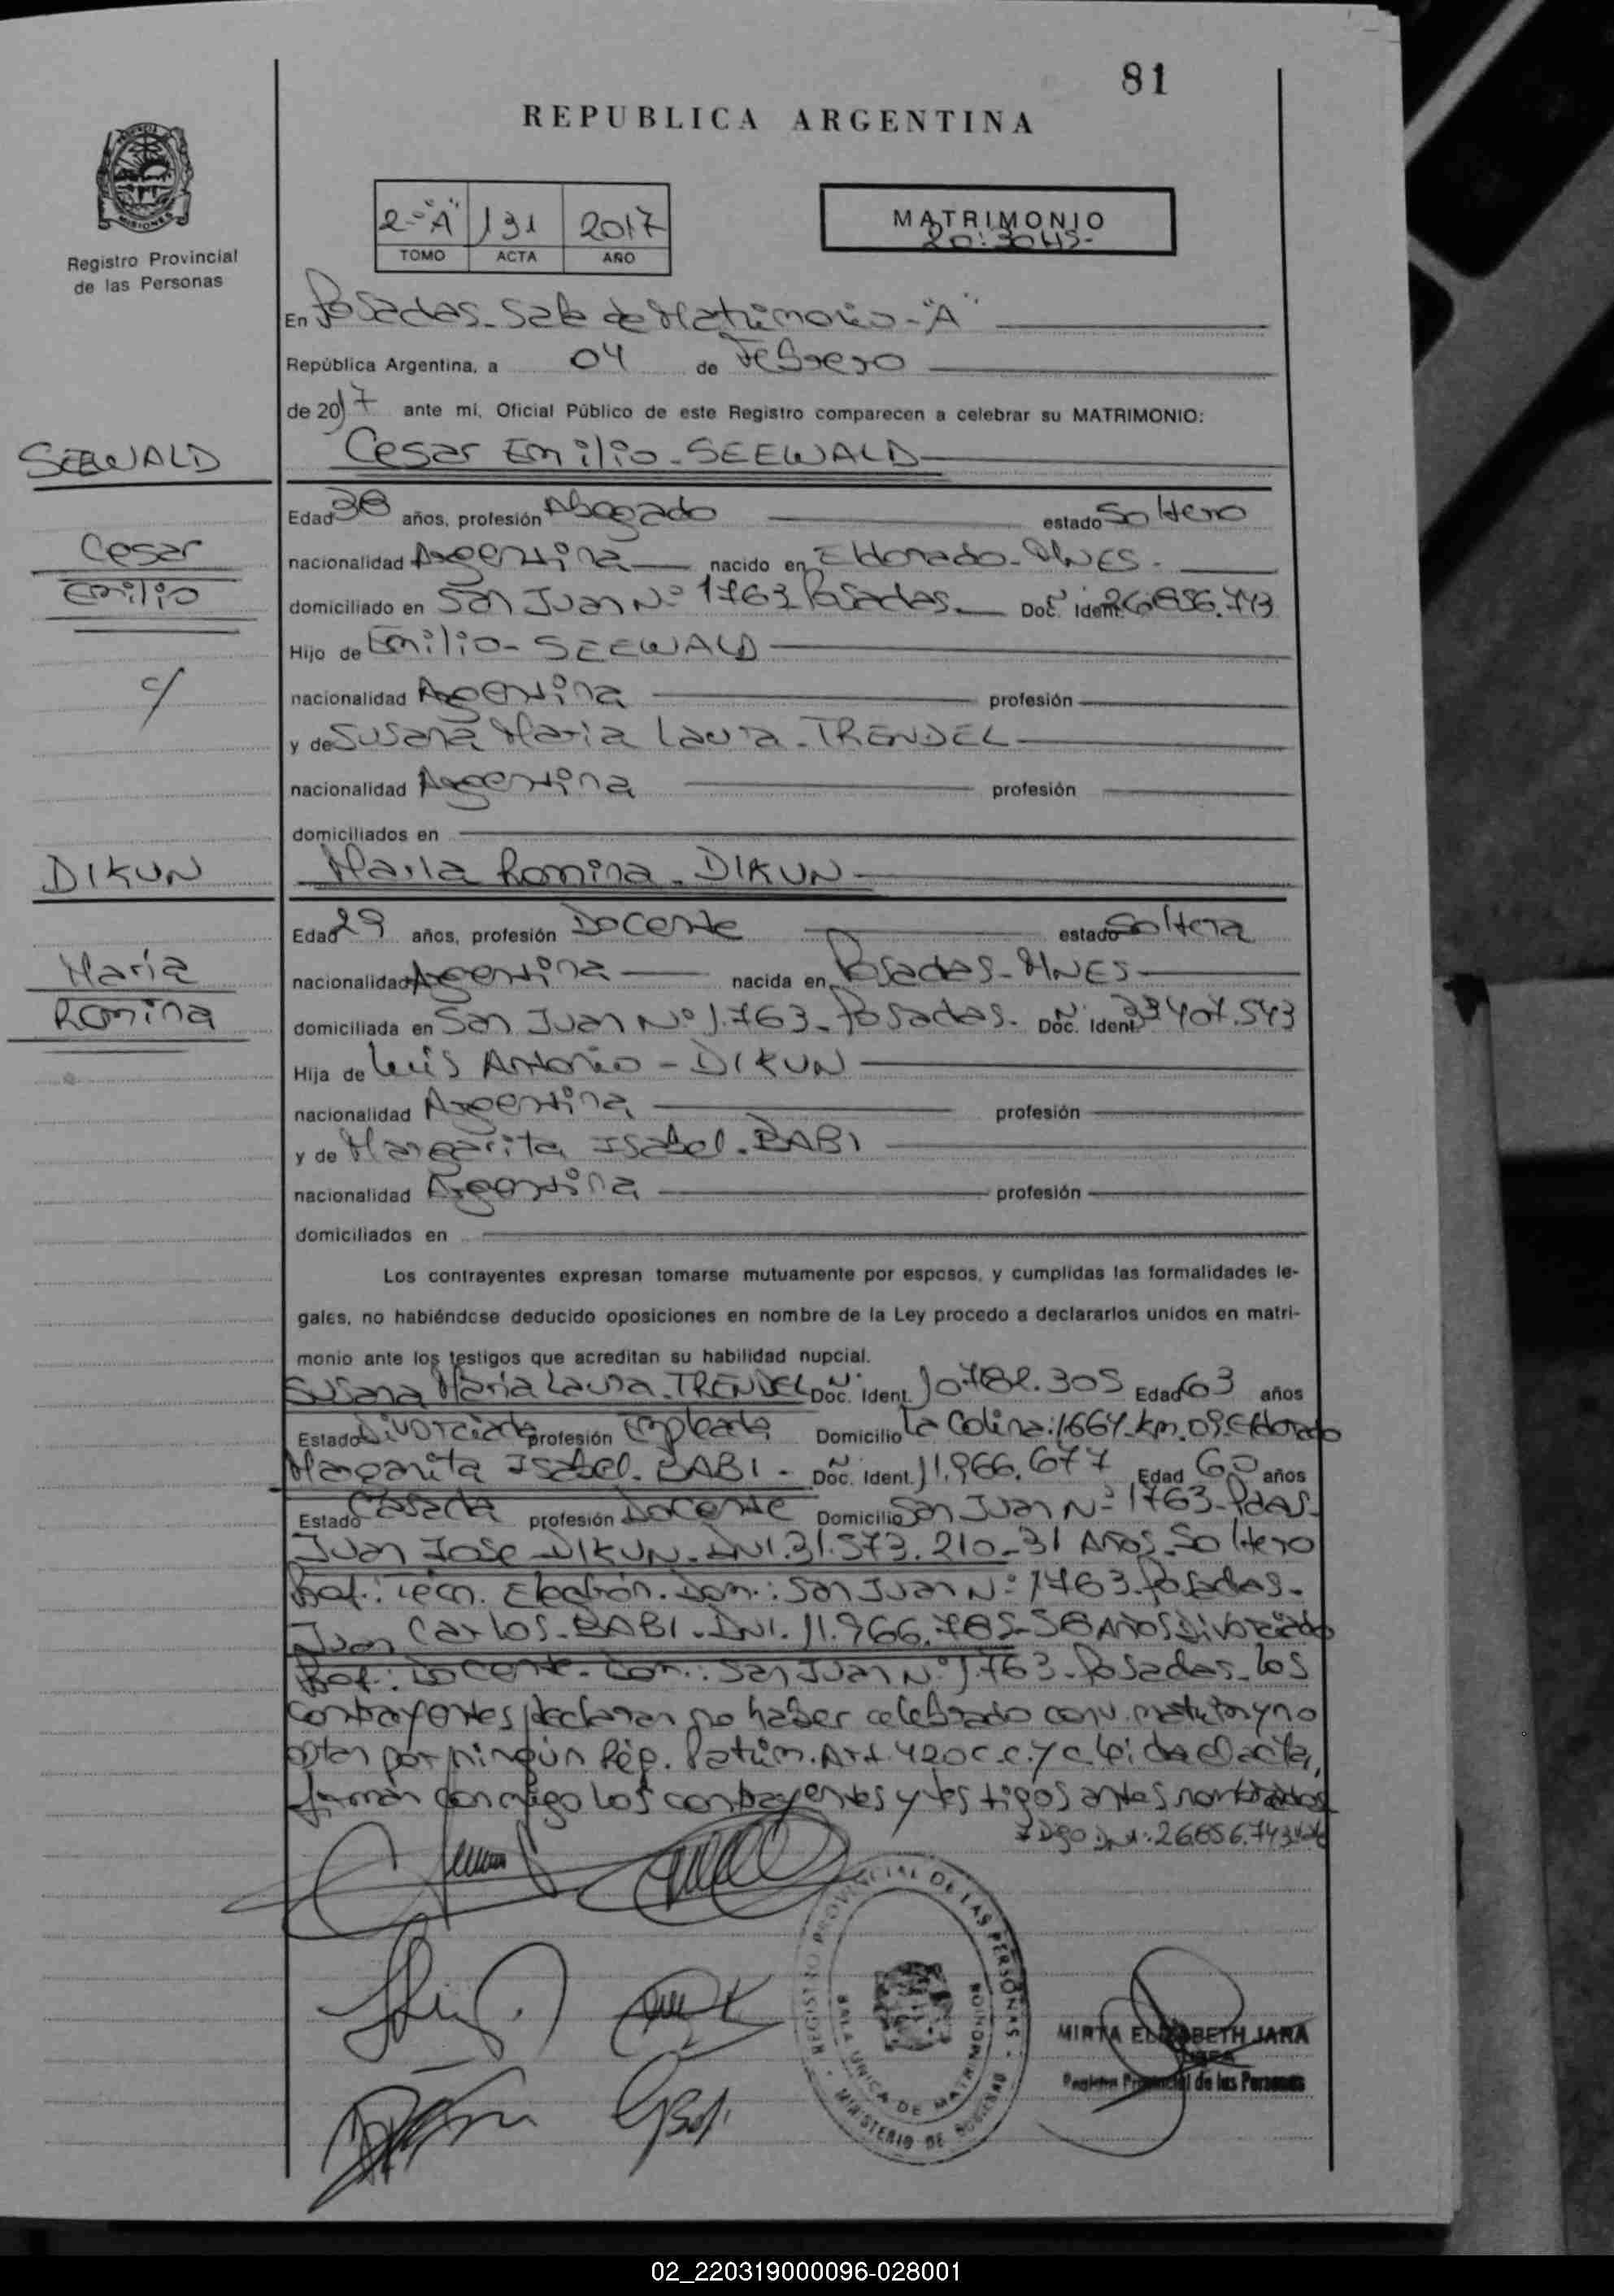 81
REPUBLICA ARGENTINA
2-"A" 131 2017
TOMO ACTA AÑO
MATRIMONIO
20:30HS-
Registro Provincial
de las Personas
En Posadas-Sala de Matrimonio-"A"
República Argentina, a 04 de Febrero
de 2017 ante mí, Oficial Público de este Registro comparecen a celebrar su MATRIMONIO:
SEEWALD
Cesar Emilio-SEEWALD
Edad 38 años, profesión Abogado estado Soltero
Cesar
nacionalidad Argentina nacido en Eldorado-MNES-
Emilio
domiciliado en San Juan Nº 1763 Posadas Doc. Ident. 26.856.743
Hijo de Emilio-SEEWALD
c/
nacionalidad Argentina profesión
y de Susana Maria Laura-TRENDEL
nacionalidad Argentina profesión
domiciliados en
DIKUN
María Romina-DIKUN
Edad 29 años, profesión Docente estado Soltera
María
nacionalidad Argentina nacida en Posadas-MNES
Romina
domiciliada en San Juan Nº 1.763-Posadas- Doc. Ident. 33407.543
Hija de Luis Antonio-DIKUN
nacionalidad Argentina profesión
y de Margarita Isabel-BABI
nacionalidad Argentina profesión
domiciliados en
Los contrayentes expresan tomarse mutuamente por esposos, y cumplidas las formalidades le-
gales, no habiéndose deducido oposiciones en nombre de la Ley procedo a declararlos unidos en matri-
monio ante los testigos que acreditan su habilidad nupcial.
Susana María Laura-TRENDEL Doc. Ident. 10782.305 Edad 63 años
Estado Divorciada profesión Empleada Domicilio La Colina:1664-Km.09-Eldorado
Margarita Isabel-BABI- Doc. Ident. 11.966.677 Edad 60 años
Estado Casada profesión Docente Domicilio San Juan Nº 1763-Pdas-
Juan Jose-DIKUN-DNI.31.573.210-31 Años-Soltero
Prof.: Técn. Electrón. Dom.: San Juan Nº 1763-Posadas-
Juan Carlos-BABI-DNI. 11.966.785-58 Años Divorciado
Prof.: Docente-Dom.: San Juan Nº 1.763-Posadas-los
contrayentes declaran no haber celebrado conv. matrim y no
optan por ningún Rég. Patrim. Art. 420 C.C. y C. leída el acta,
firman conmigo los contrayentes y testigos antes nombrados
Digo DNI: 26.856.743
REGISTRO PROVINCIAL DE LAS PERSONAS
SALA UNICA DE MATRIMONIOS
MINISTERIO DE GOBIERNO
MIRTA ELIZABETH JARA
Registro Provincial de las Personas
02_220319000096-028001